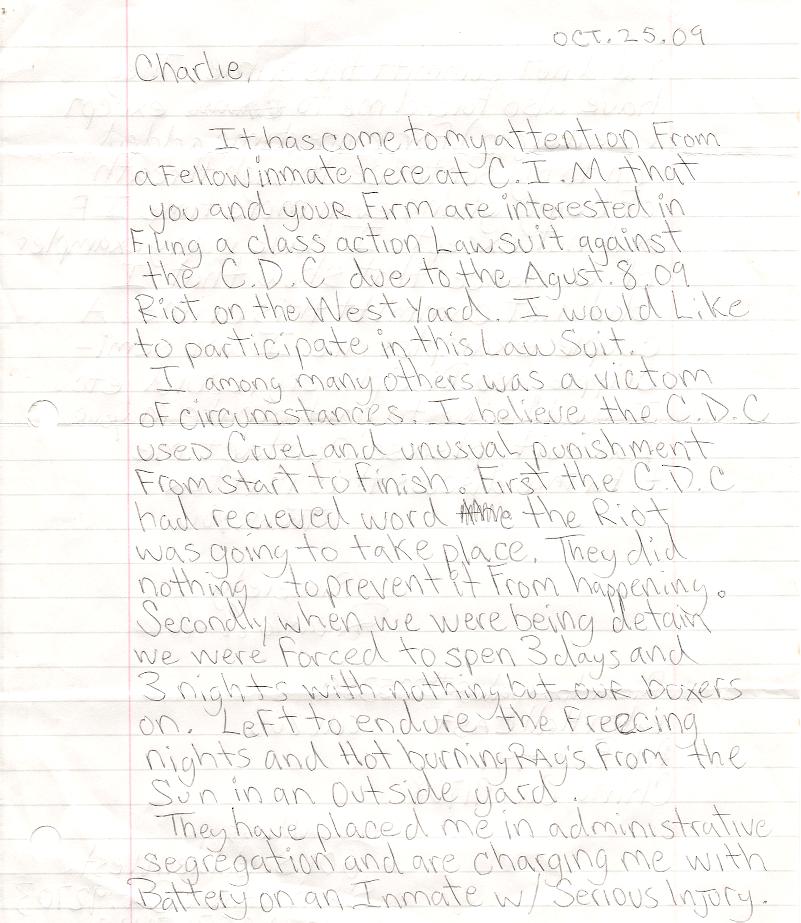 OCT. 25. 09
Charlie,
It has come to my attention From
a Fellow inmate here at C.I.M that
you and your Firm are interested in
Filing a class action Lawsuit against
the C.D.C due to the Agust. 8, 09
Riot on the West Yard. I would Like
to participate in this Law Suit.
I among many others was a victom
of circumstances. I believe the C.D.C
used Cruel and unusual punishment
From start to finish. First the C.D.C
had recieved word the Riot
was going to take place. They did
nothing to prevent it From happening.
Secondly when we were being detain
we were Forced to spen 3 days and
3 nights with nothing but our boxers
on. Left to endure the Freecing
nights and Hot burning RAy's From the
Sun in an outside yard.
They have placed me in administrative
segregation and are charging me with
Battery on an Inmate w/ Serious Injury.